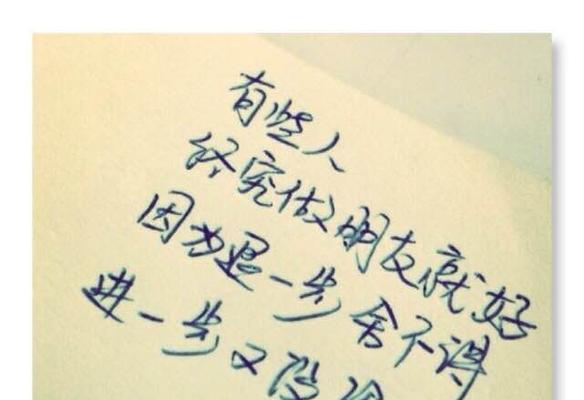 有些人
终究做朋友就好
因为退一步舍不得
进一步又没资